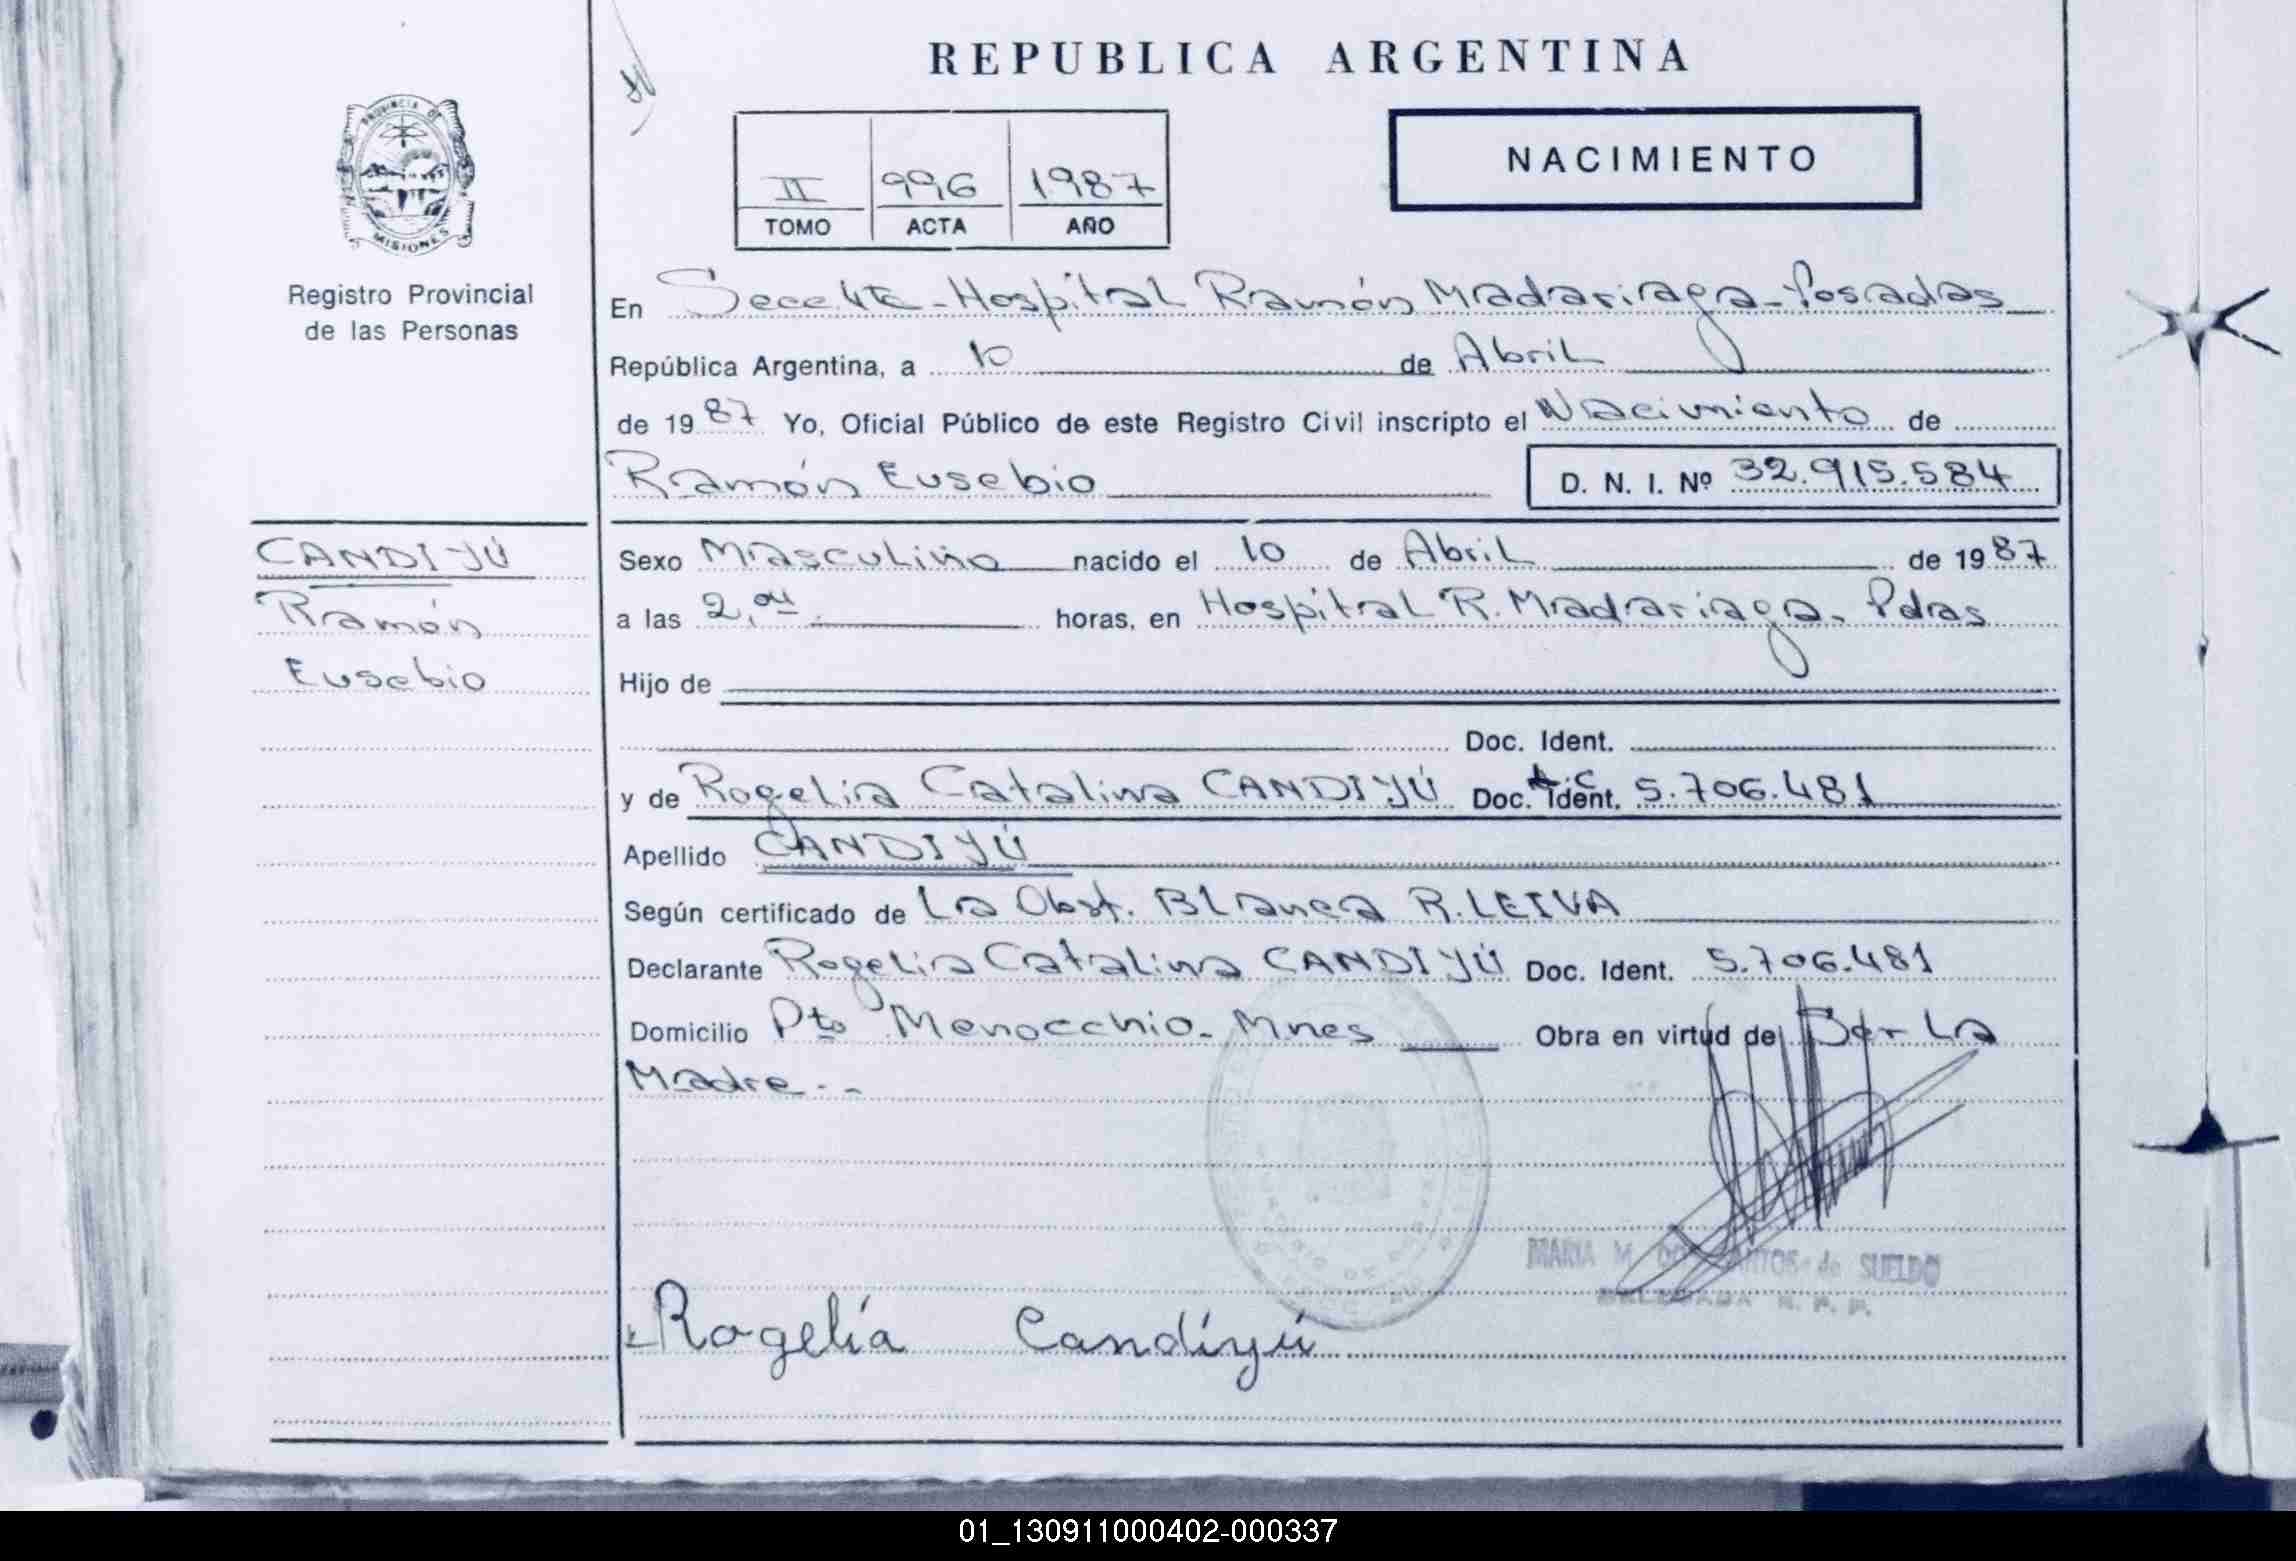 REPUBLICA ARGENTINA
PROVINCIA DE
MISIONES
Registro Provincial
de las Personas
II 996 1987
TOMO ACTA AÑO
NACIMIENTO
En Secc 4ta - Hospital Ramón Madariaga - Posadas
República Argentina, a 10 de Abril
de 1987 Yo, Oficial Público de este Registro Civil inscripto el Nacimiento de
Ramón Eusebio D. N. I. Nº 32.915.584
CANDIYÚ
Ramón
Eusebio
Sexo Masculino nacido el 10 de Abril de 1987
a las 2, horas, en Hospital R. Madariaga - Pdas
Hijo de
Doc. Ident.
y de Rogelia Catalina CANDIYÚ Doc. Ident. 5.706.481
Apellido CANDIYÚ
Según certificado de La Obst. Blanca R. LEIVA
Declarante Rogelia Catalina CANDIYÚ Doc. Ident. 5.706.481
Domicilio Pto Menocchio - Mnes Obra en virtud de Ser La
Madre.-
MARIA M. DOS SANTOS de SUELDO
DELEGADA R. P. P.
Rogelia Candiyú
01_130911000402-000337